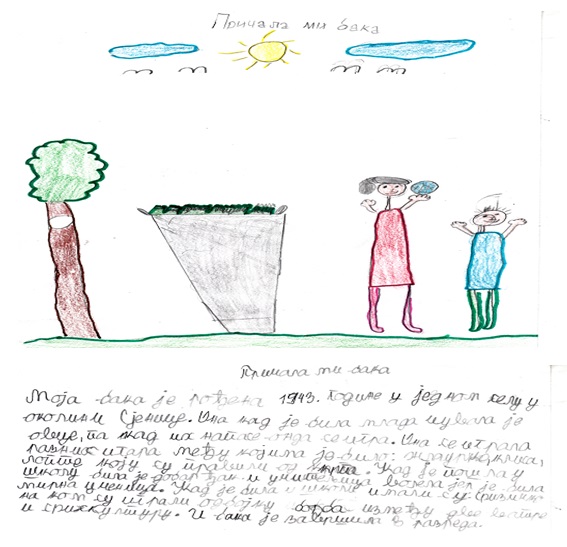 Причала ми бака
Причала ми бака
Моја бака је рођена 1943. године у једном селу у
околини Сјенице. Она кад је била млада чувала је
овце, па кад их напасе онда се игра. Она се играла
разних игара међу којима је било:
лопте коју су правили од крпа. Кад је пошла у
школу била је добар ђак и учитељица волела јер је била
мирна ученица. Кад је била у школи имали су физичко
на ком су играли одбојку борба између две ватре
и фискултуру. И бака је завршила 8 разреда.